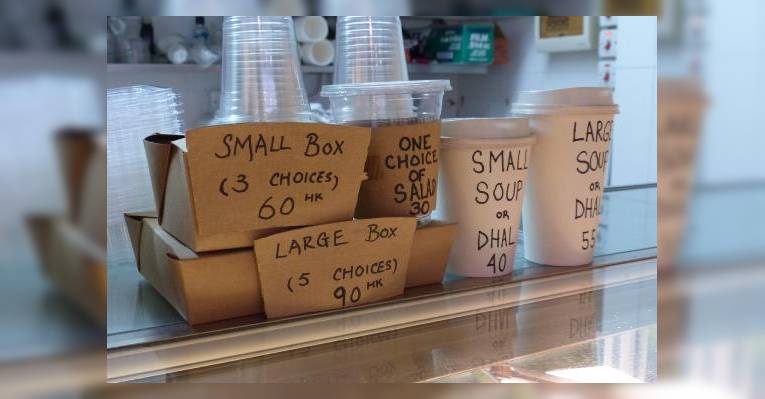 SMALL Box
(3 CHOICES)
60 HK
LARGE Box
(5 CHOICES)
90 HK
ONE
CHOICE
OF
SALAD
30
SMALL
SOUP
OR
DHAL
40
LARGE
SOUP
OR
DHAL
55